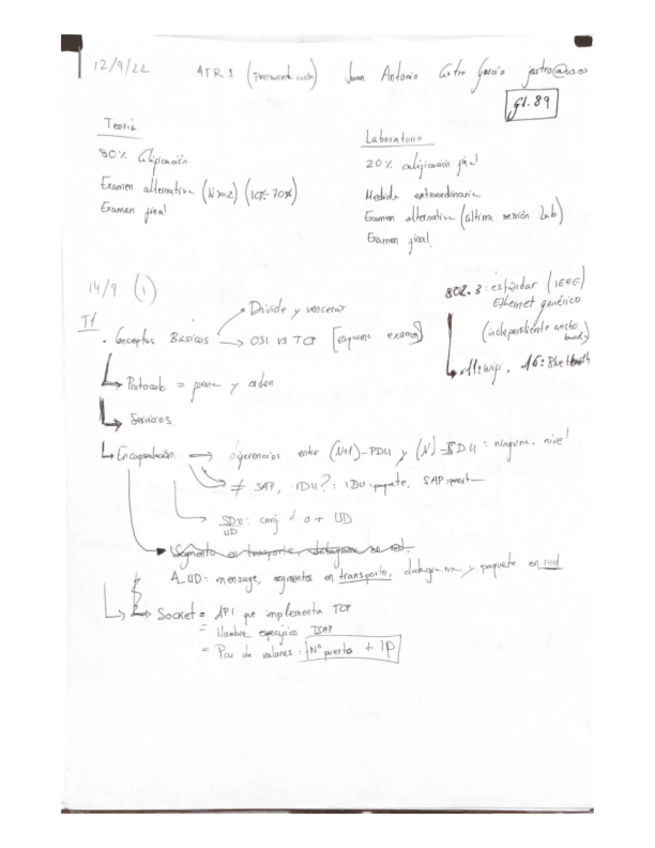 12/9/22 (Presentación) Juan Antonio Castro García jcastro@us.es
G1.89
Teoría
80% Calificación
Examen alternativa (N>=2) (10%-70%)
Examen final
Laboratorio
20% calificación final
Medida extraordinaria
Examen alternativa (última sesión Lab)
Examen final.
14/9 (1)
T1
802.3: estándar (IEEE)
Ethernet genérico
(independiente ancho
banda)
11: wifi. 16: Bluetooth
Divide y vencerás
. Conceptos Básicos → OSI vs TCP [esquema examen]
Protocolo = forma y orden
Servicios.
Encapsulación. → diferencias entre (N+1)-PDU y (N)-SDU: ninguna, nivel
≠ SAP, IDU?: IDU: paquete, SAP:
SDU: conj. d o + UD
UD
Segmento en transporte, datagrama en red.
A_UD: mensage, segmentos en transporte, datagrama y paquete en red
Socket = API que implementa TCP
= Nombre específico TSAP
= Par de valores: Nº puerto + IP